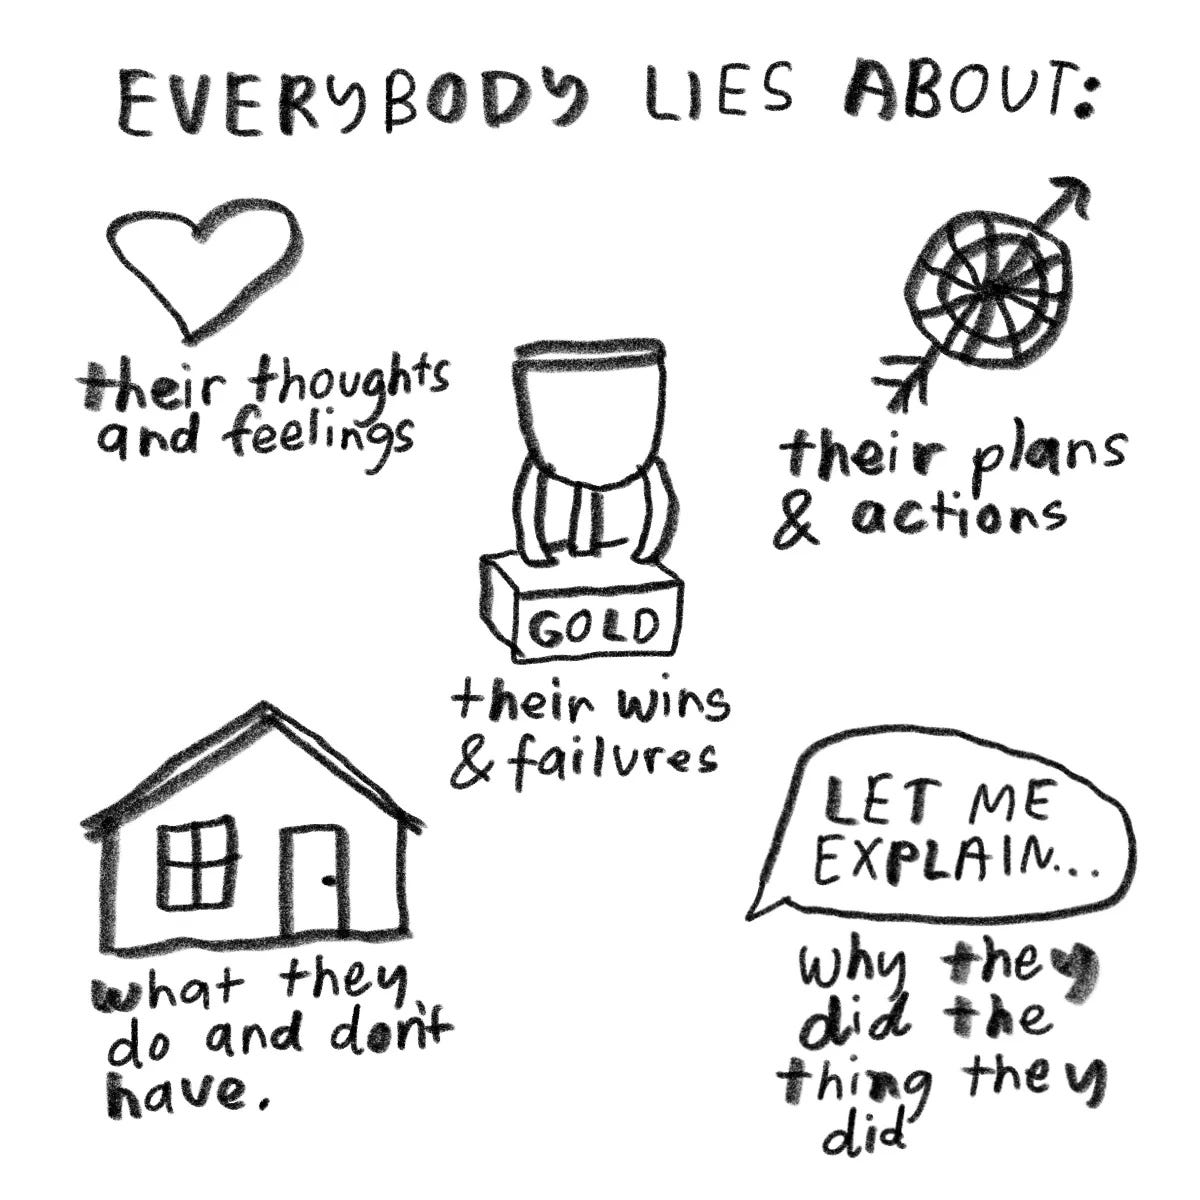 EVERYBODY LIES ABOUT:
their thoughts
and feelings
their plans
& actions
GOLD
their wins
& failures
what they
do and don't
have.
LET ME
EXPLAIN...
why they
did the
thing they
did